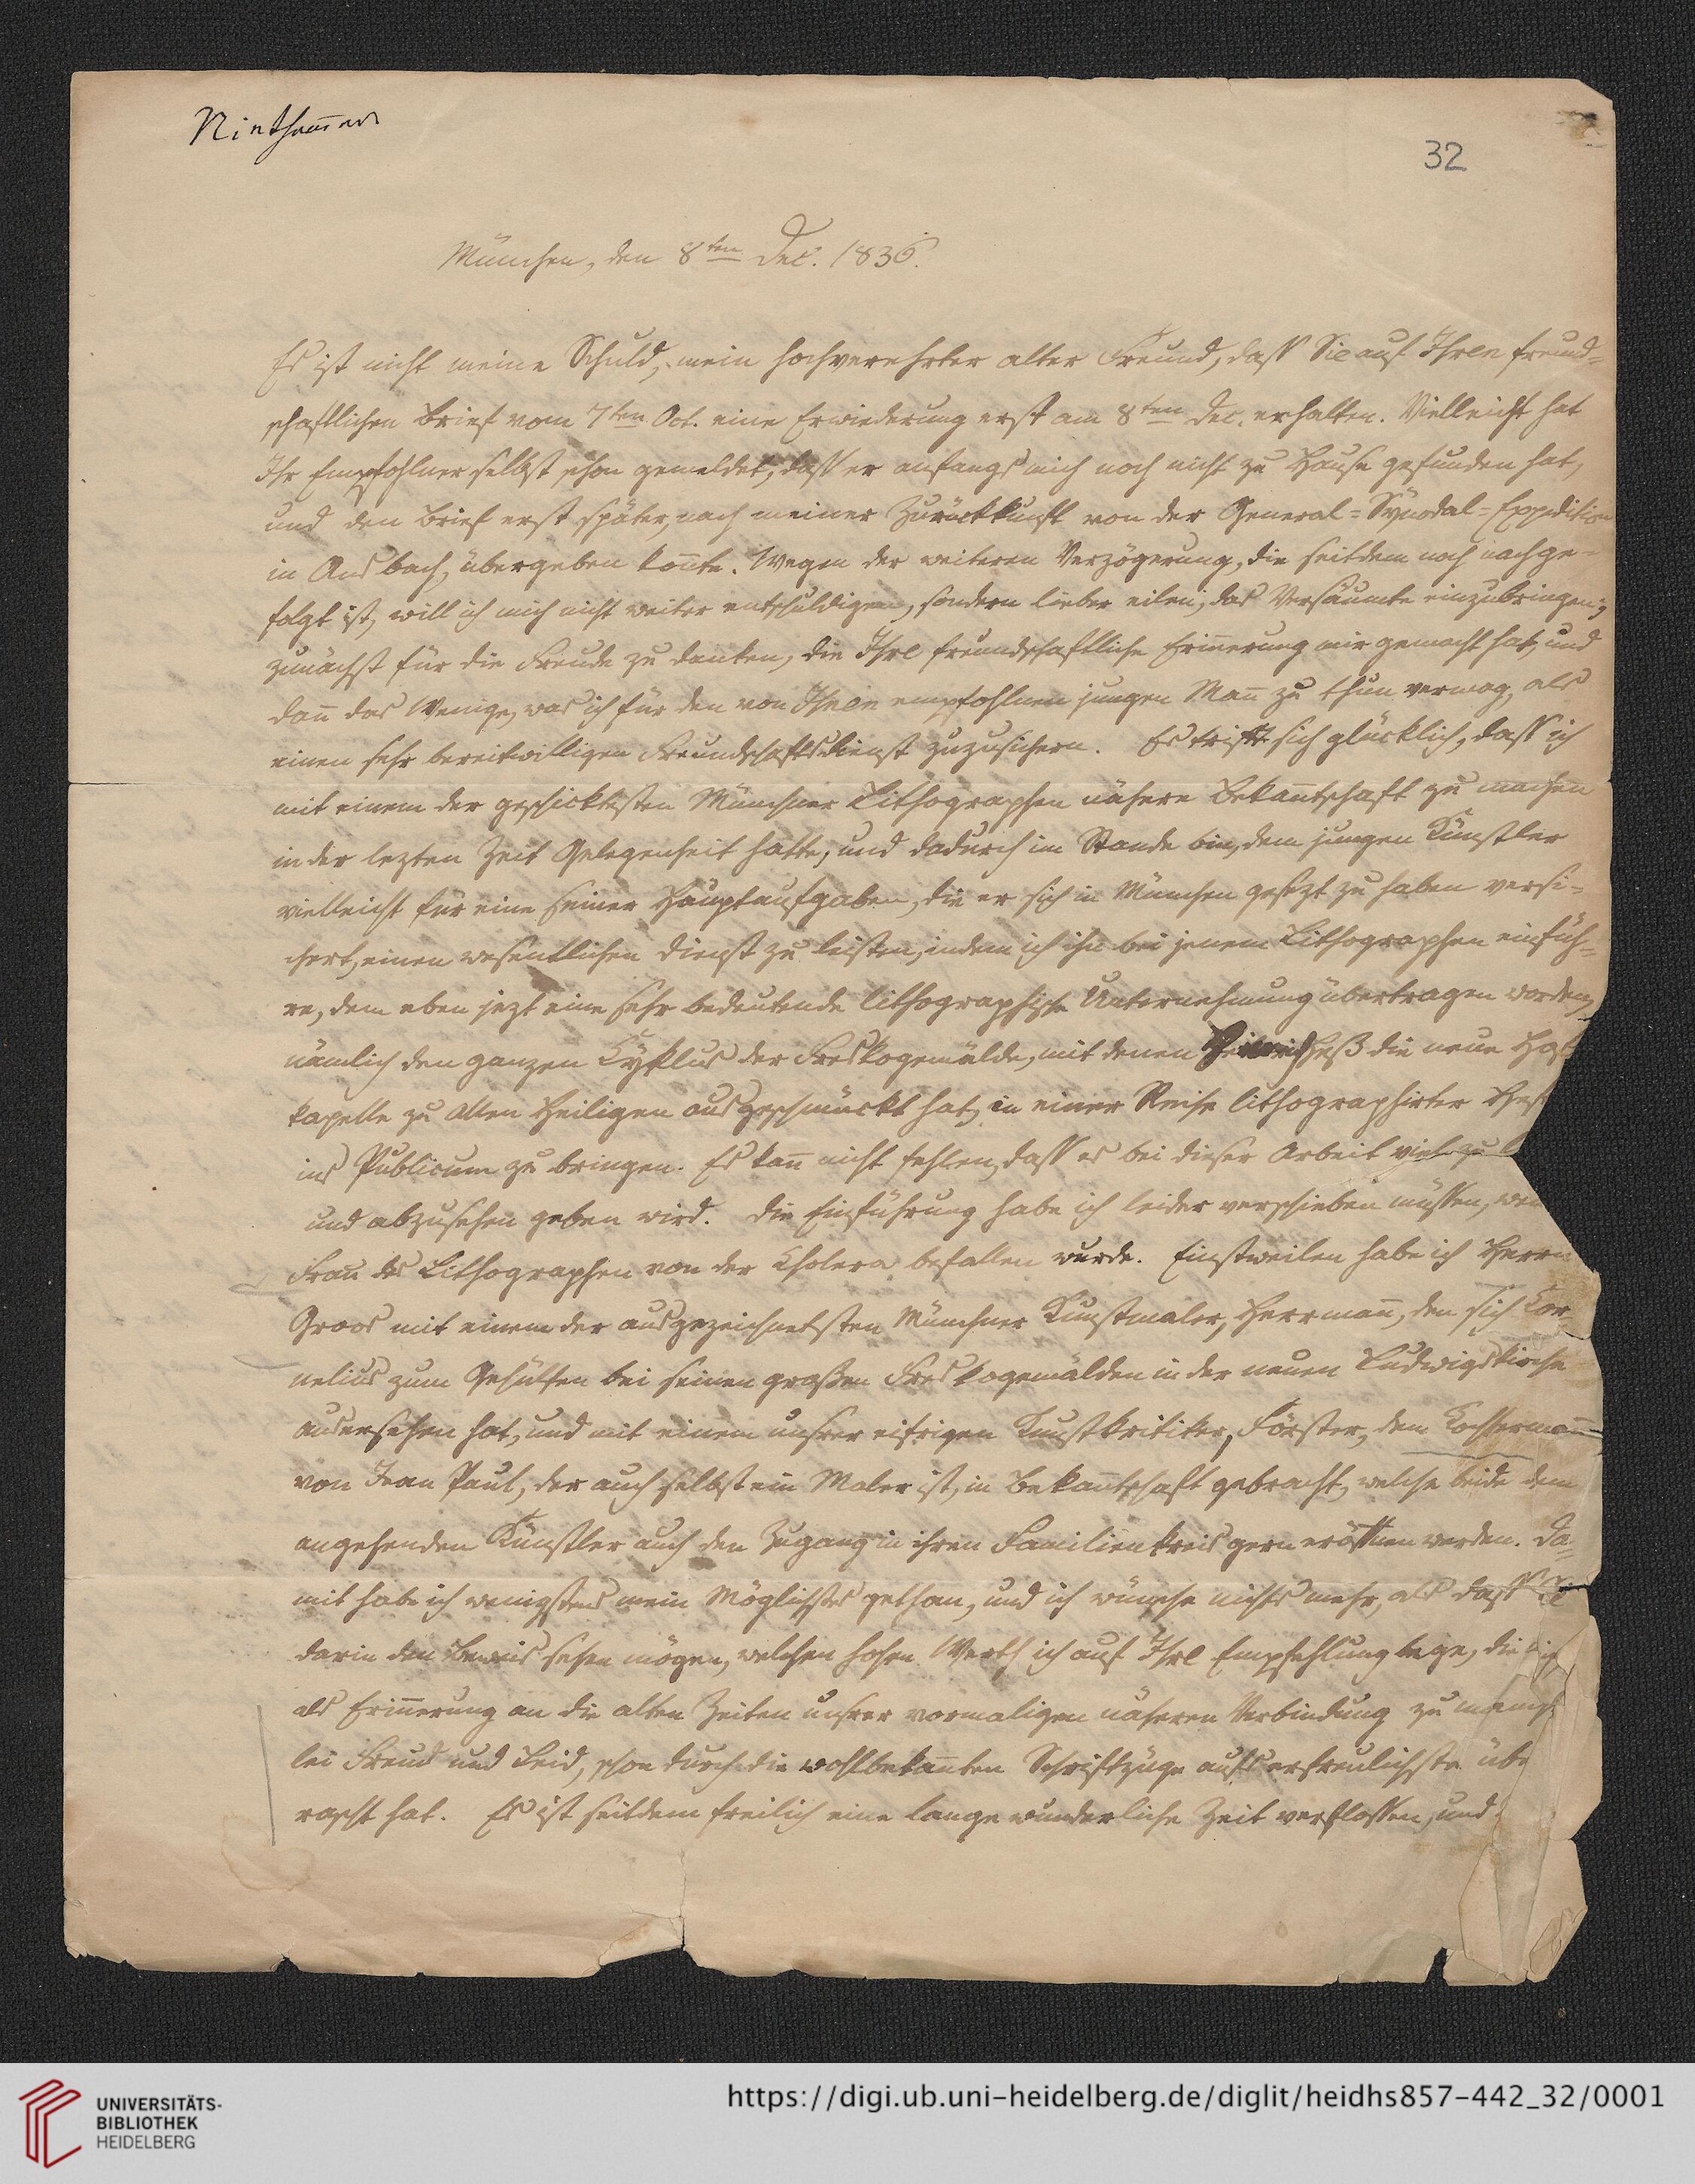 Nietham̄er
32
München, den 8ten Dec. 1836.
Es ist nicht meine Schuld, mein hochverehrter alter Freund, daß Sie auf Ihren freund=
schaftlichen Brief vom 7ten Oct. eine Erwiederung erst am 8ten Dec. erhalten. Vielleicht hat
Ihr Empfohlner selbst schon gemeldet, daß er anfangs mich noch nicht zu Hause gefunden hat,
und den Brief erst später, nach meiner Zurückkunft von der General=Synodal=Expedition
in Ansbach, übergeben kon̄te. Wegen der weiteren Verzögerung, die seitdem noch nachge=
folgt ist, will ich mich nicht weiter entschuldigen, sondern lieber eilen, das Versäumte einzubringen;
zunächst für die Freude zu danken, die Ihre freundschaftliche Erin̄erung mir gemacht hat, und
dan̄ das Wenige, was ich für den von Ihnen empfohlnen jungen Man̄ zu thun vermag, als
einen sehr bereitwilligen Freundschaftsdienst zuzusichern. Es trifft sich glücklich, daß ich
mit einem der geschicktesten Münchner Lithographen nähere Bekan̄tschaft zu machen
in der lezten Zeit Gelegenheit hatte, und dadurch im Stande bin, dem jungen Künstler
vielleicht für eine seiner Hauptaufgaben, die er sich in München gesezt zu haben versi=
chert, einen wesentlichen Dienst zu leisten, indem ich ihn bei jenem Lithographen einfüh=
re, dem eben jezt eine sehr bedeutende lithographische Unternehmung übertragen worden,
nämlich den ganzen Cyklus der Freskogemälde, mit denen Heinrich Heß die neue Hof
kapelle zu Allen Heiligen ausgeschmückt hat, in einer Reihe lithographirter Heft
ins Publicum zu bringen. Es kan̄ nicht fehlen, daß es bei dieser Arbeit viel zu
und abzusehen geben wird. Die Einführung habe ich leider verschieben müssen, we
Frau des Lithographen von der Cholera befallen wurde. Einstweilen habe ich Herrn
Groos mit einem der ausgezeichnetsten Münchner Kunstmaler, Herrman̄, den sich Cor=
nelius zum Gehülfen bei seinen großen Freskogemälden in der neuen Ludwigskirche
ausersehen hat, und mit einem unsrer eifrigen Kunstkritiker, Förster, dem Tochterman̄
von Jean Paul, der auch selbst ein Maler ist, in Bekan̄tschaft gebracht, welche beide dem
angehenden Künstler auch den Zugang in ihren Familienkreis gern eröffnen werden. Da=
mit habe ich wenigstens mein Möglichstes gethan, und ich wünsche nichts mehr, als daß Sie
darin den Beweis sehen mögen, welchen hohen Werth ich auf Ihre Empfehlung lege, die
als Erin̄erung an die alten Zeiten unsrer vormaligen näheren Verbindung zu manch
lei Freud und Leid, schon durch die wohlbekan̄ten Schriftzüge aufs erfreulichste übe
rascht hat. Es ist seitdem freilich eine lange wunderliche Zeit verflossen, und
UNIVERSITÄTS-
BIBLIOTHEK
HEIDELBERG
https://digi.ub.uni-heidelberg.de/diglit/heidhs857-442_32/0001